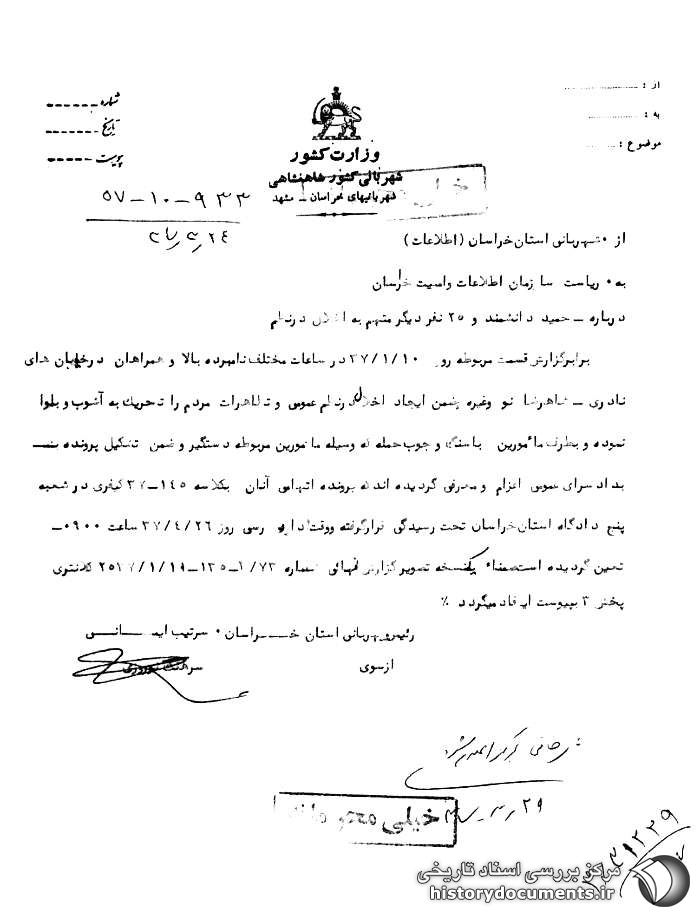 از :
به :
موضوع :
شماره
تاریخ
پیوست
وزارت کشور
شهربانی کشور شاهنشاهی
شهربانیهای خراسان - مشهد
خیلی
۵۷-۱۰-۹۳۳
از : شهربانی استان خراسان (اطلاعات)
به : ریاست سازمان اطلاعات وامنیت خراسان
درباره - حمید دانشمند و ۲۵ نفر دیگر متهم به اخلال در نظم
برابر گزارش قسمت مربوطه روز ۳۷/۱/۱۰ در ساعات مختلف نامبرده بالا و همراهان در خیابان های
نادری - شاهرضا نو وغیره ضمن ایجاد اخلال در نظم عمومی و تظاهرات مردم را تحریک به آشوب و بلوا
نموده و بطرف مأمورین با سنگ و چوب حمله که وسیله مامورین مربوطه دستگیر و ضمن تشکیل پرونده
بدادسرای عمومی اعزام و معرفی گردیده اند که پرونده اتهامی آنان بکلاسه ۱۴۵-۳۷ کیفری در شعبه
پنج دادگاه استان خراسان تحت رسیدگی قرار گرفته ووقت دادرسی روز ۳۷/۴/۲۶ ساعت ۰۹۰۰-
تعیین گردیده استضمنا یکنسخه تصویر گزارش نهائی شماره ۱/۷۳-۱۳۵-۲۵۳۷/۱/۱۹ کلانتری
بخش ۳ بپیوست ایفاد میگردد ٪
رئیس شهربانی استان خراسان ۰ سرتیپ
ازسوی
سرهنگ نوروزی
خیلی محرمانه
مرکز بررسی اسناد تاریخی
historydocuments.ir